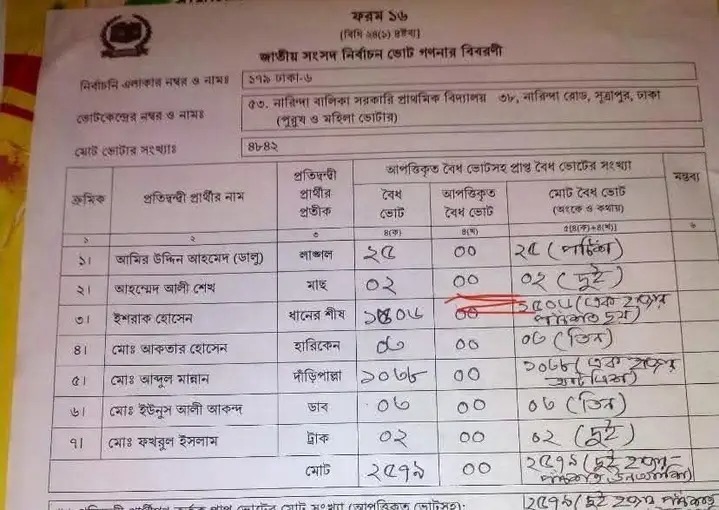 ফরম ১৬
[বিধি ২৪(১) দ্রষ্টব্য]
জাতীয় সংসদ নির্বাচন ভোট গণনার বিবরণী
নির্বাচনি এলাকার নম্বর ও নামঃ ১৭৯ ঢাকা-৬
ভোটকেন্দ্রের নম্বর ও নামঃ ৫৩. নারিন্দা বালিকা সরকারি প্রাথমিক বিদ্যালয় ৩৮, নারিন্দা রোড, সূত্রাপুর, ঢাকা
(পুরুষ ও মহিলা ভোটার)
মোট ভোটার সংখ্যাঃ ৪৮৪২
ক্রমিক প্রতিদ্বন্দ্বী প্রার্থীর নাম প্রতিদ্বন্দ্বী প্রার্থীর প্রতীক আপত্তিকৃত বৈধ ভোটসহ প্রাপ্ত বৈধ ভোটের সংখ্যা মন্তব্য
বৈধ ভোট আপত্তিকৃত বৈধ ভোট মোট বৈধ ভোট (অংকে ও কথায়)
১ ২ ৩ ৪(ক) ৪(খ) ৫[৪(ক)+৪(খ)] ৬
১। আমির উদ্দিন আহমেদ (ডালু) লাঙ্গল ২৫ ০০ ২৫ (পঁচিশ)
২। আহম্মেদ আলী শেখ মাছ ০২ ০০ ০২ (দুই)
৩। ইশরাক হোসেন ধানের শীষ ১৫০৬ ০০ ১৫০৬ (এক হাজার পাঁচশত ছয়)
৪। মোঃ আকতার হোসেন হারিকেন ০৩ ০০ ০৩ (তিন)
৫। মোঃ আব্দুল মান্নান দাঁড়িপাল্লা ১০৩৮ ০০ ১০৩৮ (এক হাজার আটত্রিশ)
৬। মোঃ ইউনুস আলী আকন্দ ডাব ০৩ ০০ ০৩ (তিন)
৭। মোঃ ফখরুল ইসলাম ট্রাক ০২ ০০ ০২ (দুই)
মোট ২৫৭৯ ০০ ২৫৭৯ (দুই হাজার পাঁচশত উনআশি)
প্রাপ্ত ভোটের মোট সংখ্যা (আপত্তিকৃত ভোটসহ): ২৫৭৯ (দুই হাজার পাঁচশত